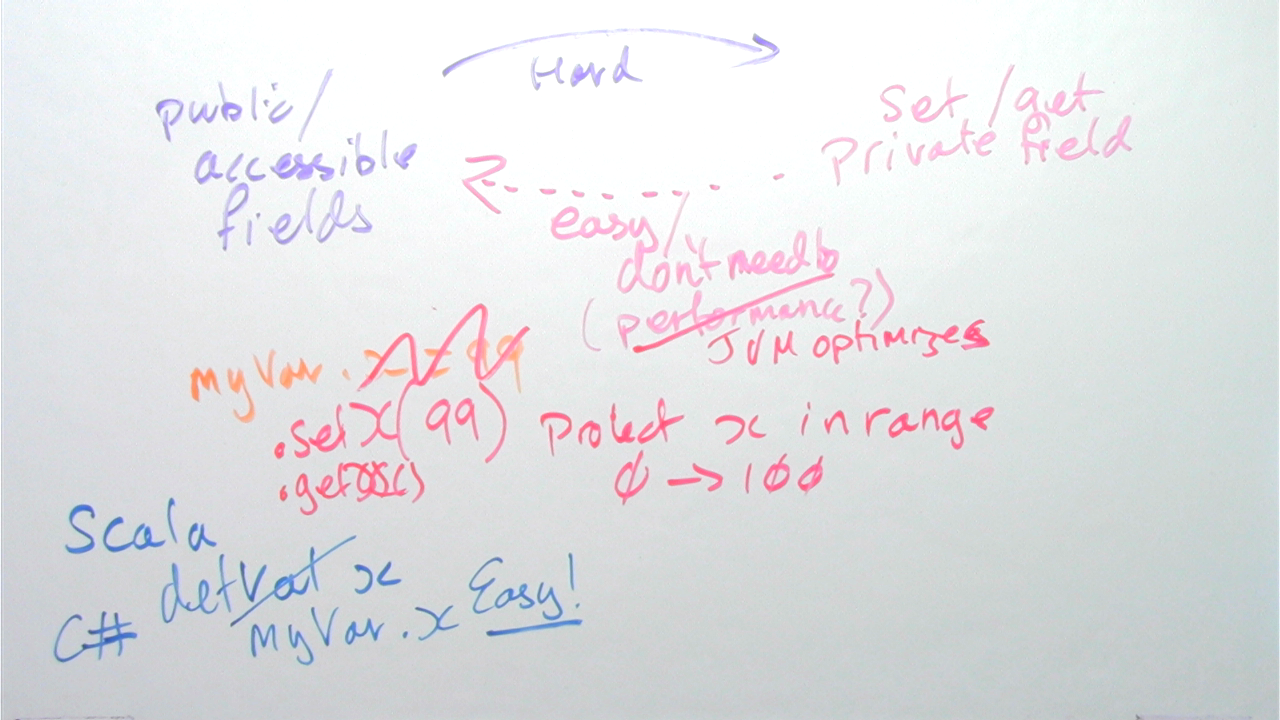 Hard
public/
accessible
fields
Set/get
Private field
easy/
don't need to
(performance?)
JVM optimizes
myVar.x=99
.setX(99)
.getX()
Protect x in range
0 → 100
Scala
def var x
C#
myVar.x Easy!